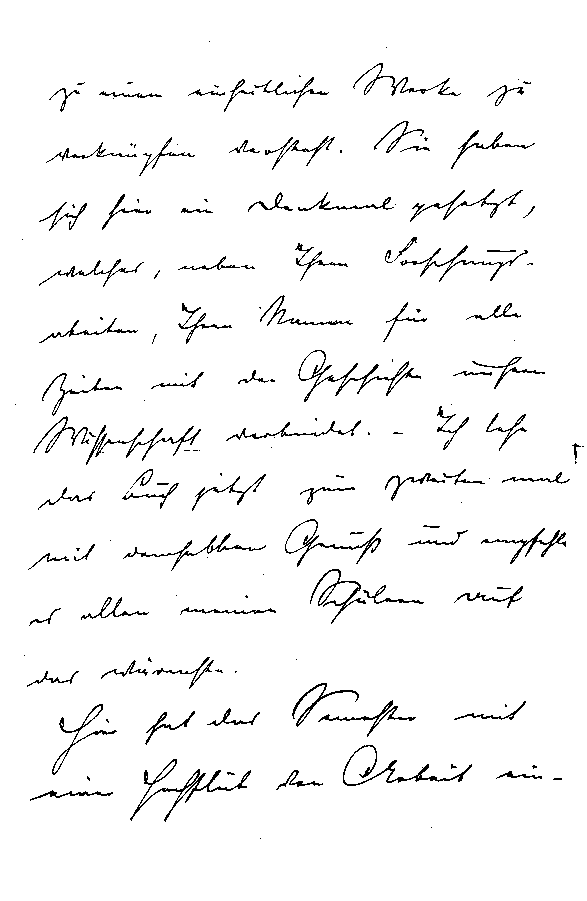 zu einem einheitlichen Werke zu
verknüpfen versteht. Sie haben
sich hier ein Denkmal gesetzt,
welches, neben Ihren Forschungs-
arbeiten, Ihren Namen für alle
Zeiten mit der Geschichte unserer
Wissenschaft verbindet. – Ich lese
das Buch jetzt zum zweiten mal
mit demselben Genuß und empfehle
es allen meinen Schülern auf
das wärmste.
Hier hat das Semester mit
einer Hochflut von Arbeit ein-